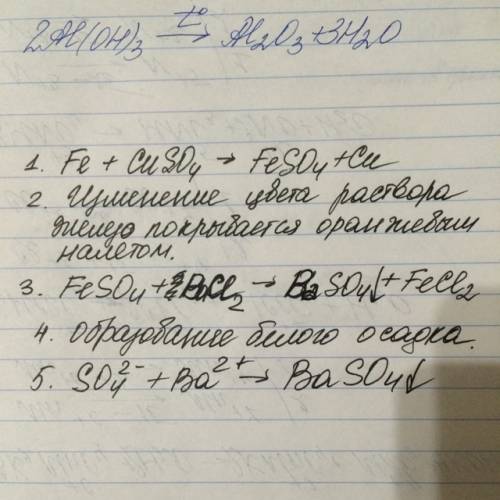 2Al(OH)₃ →t° Al₂O₃ + 3H₂O
1. Fe + CuSO₄ → FeSO₄ + Cu
2. Изменение цвета раствора
железо покрывается оранжевым
налетом.
3. FeSO₄ + BaCl₂ → BaSO₄↓ + FeCl₂
4. Образование белого осадка.
5. SO₄²⁻ + Ba²⁺ → BaSO₄↓